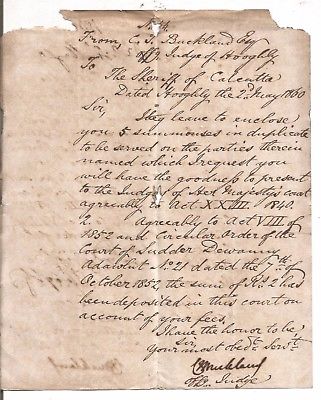 No 4
From, C. T. Buckland Esq
Offg Judge of Hooghly
To
The Sheriff of Calcutta
Dated Hooghly the 2nd May 1860
Sir,
I beg leave to enclose
you 5 summonses in duplicate
to be served on the parties therein
named which I request you
will have the goodness to present
to the Judges of Her Majesty's court
agreeably to Act XXIII. 1840.
2. Agreeably to Act VIII of
1852 and Circular Order of the
Court of Sudder Dewanny
Adawlut No 21 dated the 7th of
October 1852, the sum of Rs. 2 has
been deposited in this court on
account of your fees,
I have the honor to be
Sir,
Your most obedt. Servt.
CTBuckland
Offg. Judge